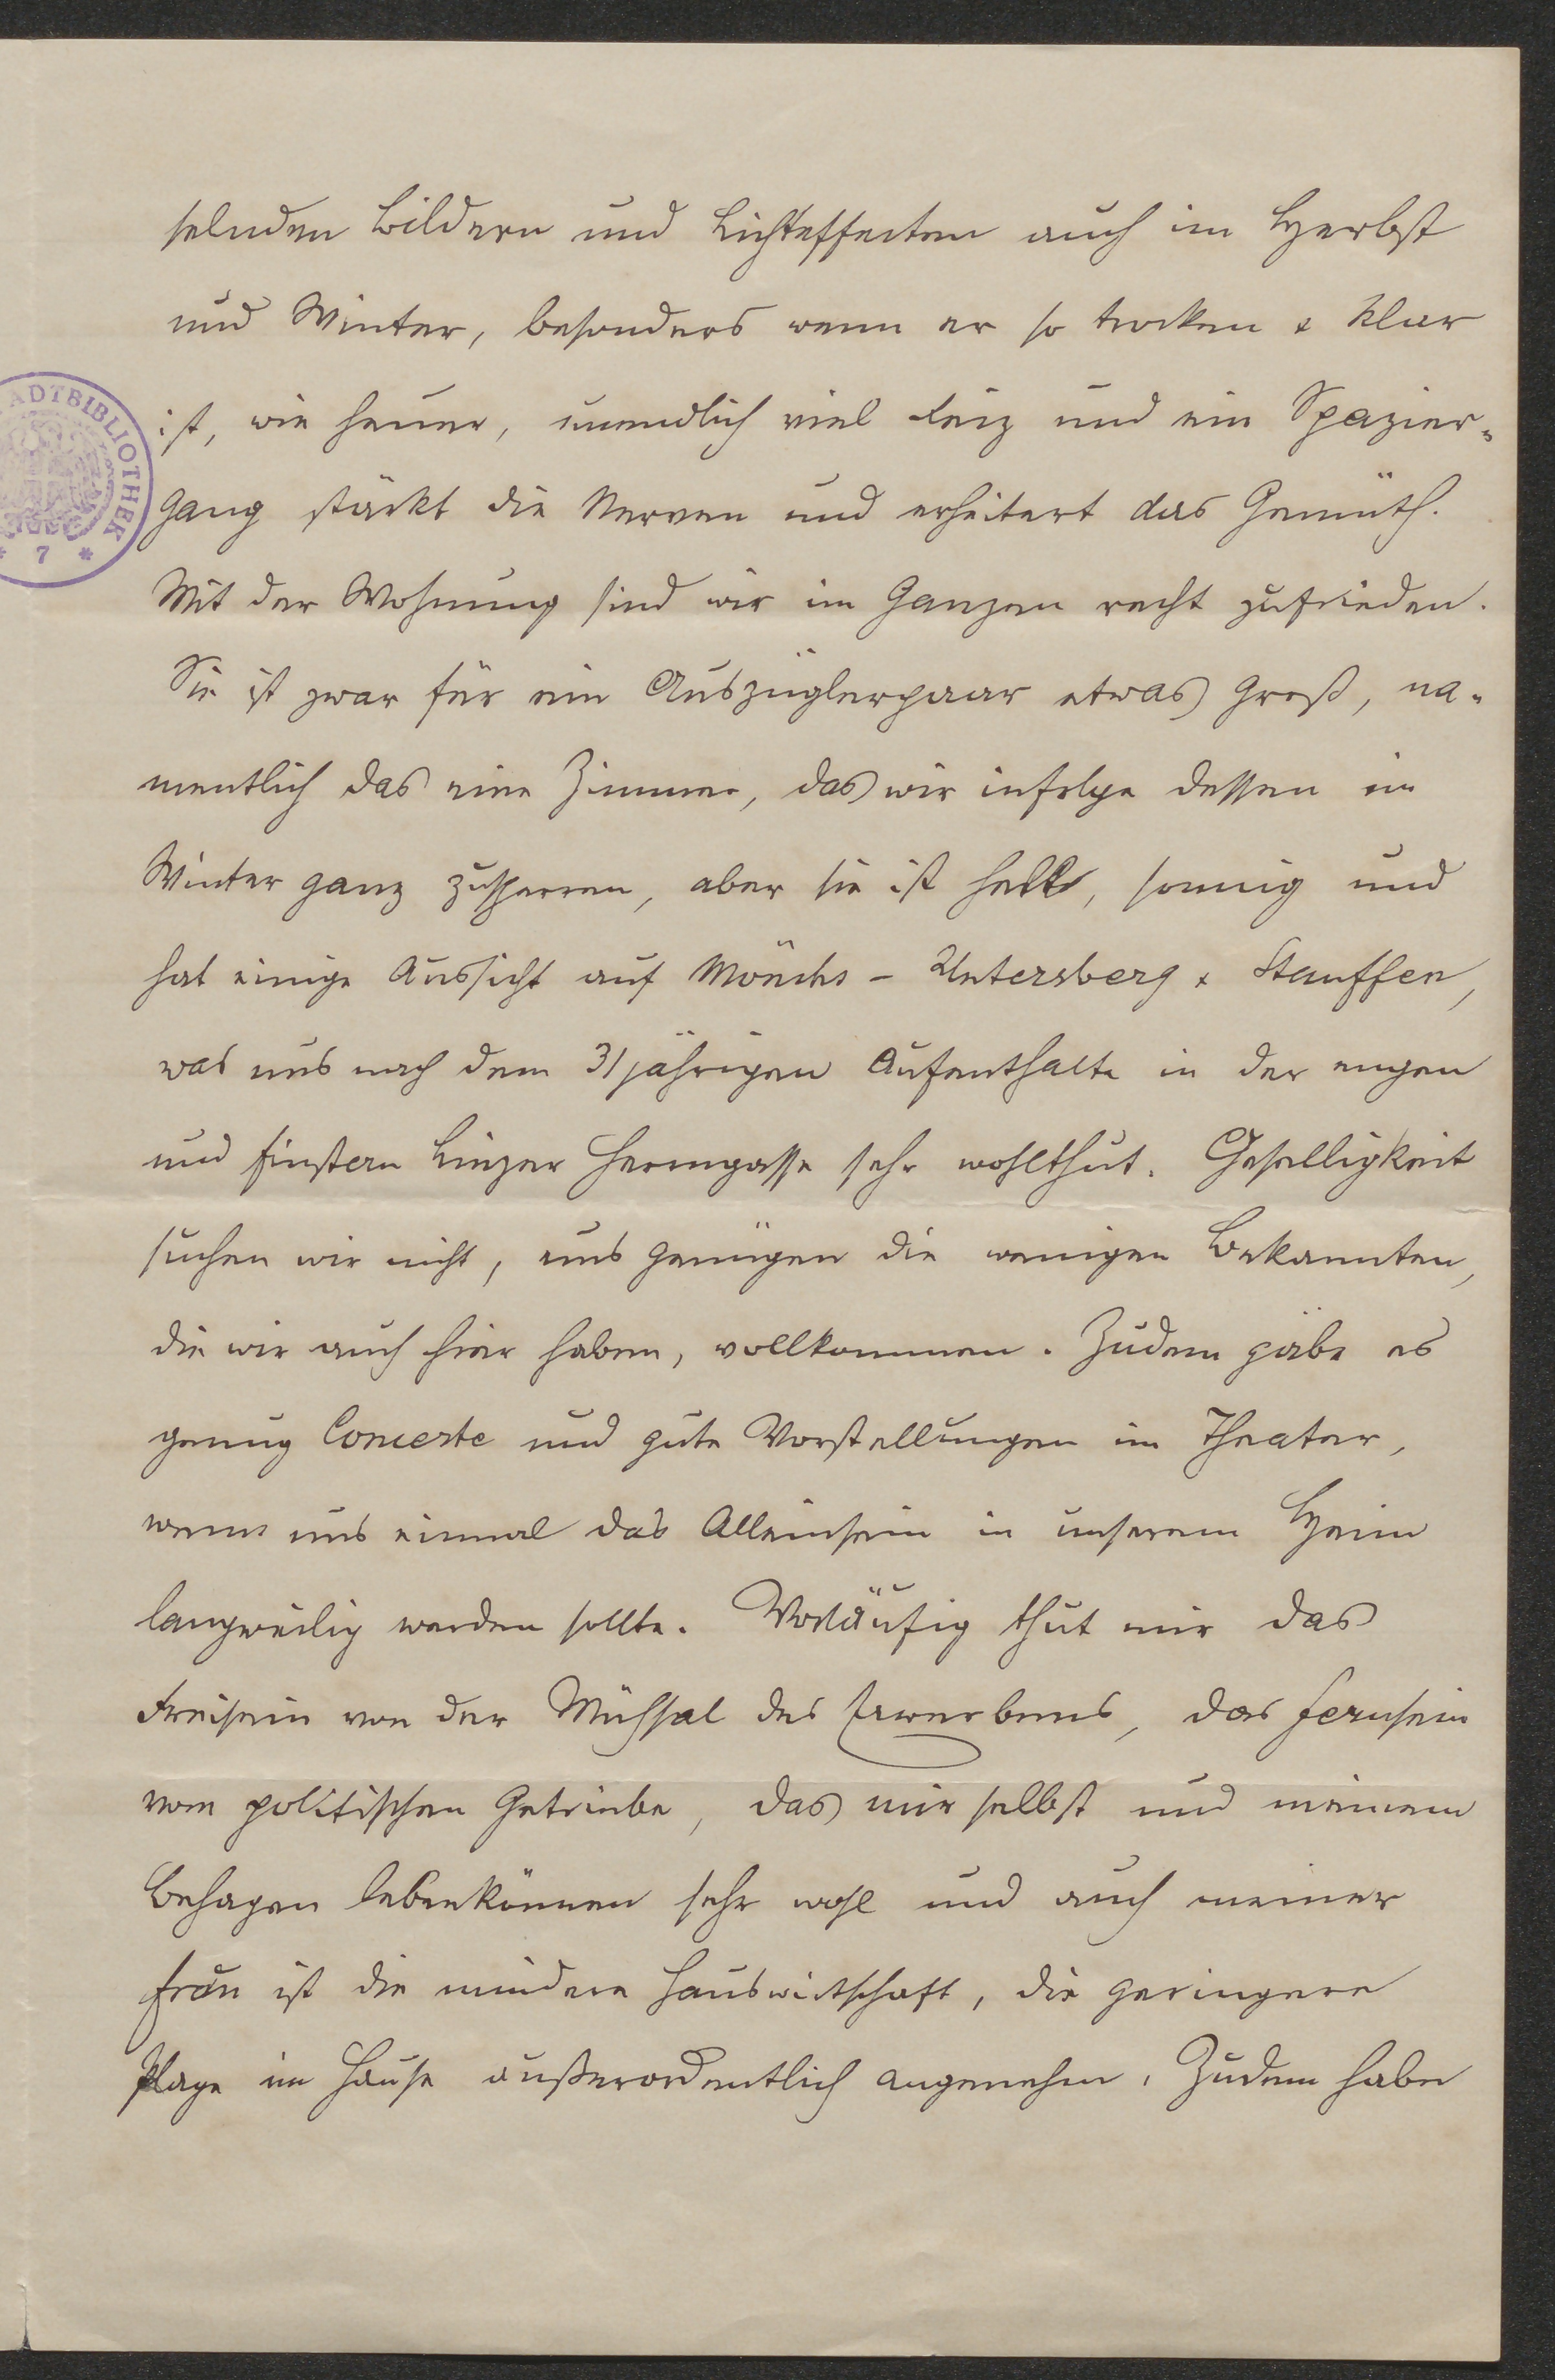 selnden Bildern und Lichteffecten auch im Herbst
und Winter, besonders wenn er so trocken & klar
ist, wie heuer, unendlich viel Reiz und ein Spazier=
gang stärkt die Nerven und erheitert das Gemüth.
Mit der Wohnung sind wir im Ganzen recht zufrieden.
Sie ist zwar für ein Auszüglerpaar etwas groß, na=
mentlich das eine Zimmer, das wir infolge dessen im
Winter ganz zusperren, aber sie ist hell, sonnig und
hat einige Aussicht auf Mönchs- Untersberg & Stauffen,
was uns nach dem 31jährigen Aufenthalte in der engen
und finstern Linzer Herrngasse sehr wohlthut. Geselligkeit
suchen wir nicht, uns genügen die wenigen Bekannten,
die wir auch hier haben, vollkommen. Zudem gäbe es
genug Concerte und gute Vorstellungen im Theater,
wenn uns einmal das Alleinsein in unserem Heim
langweilig werden sollte. Vorläufig thut mir das
Freisein von der Mühsal des Erwerbens, das Fernsein
vom politischen Getriebe, das mir selbst und meinem
Behagen lebenkönnen sehr wohl und auch meiner
Frau ist die mindere Hauswirtschaft, die geringere
Plage im Hause außerordentlich angenehm. Zudem habe
ADTBIBLIOTHEK
* 7 *